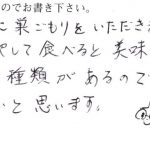 のでお書き下さい。
に巣ごもりをいただき
やして食べると美味
種類があるので
いと思います。